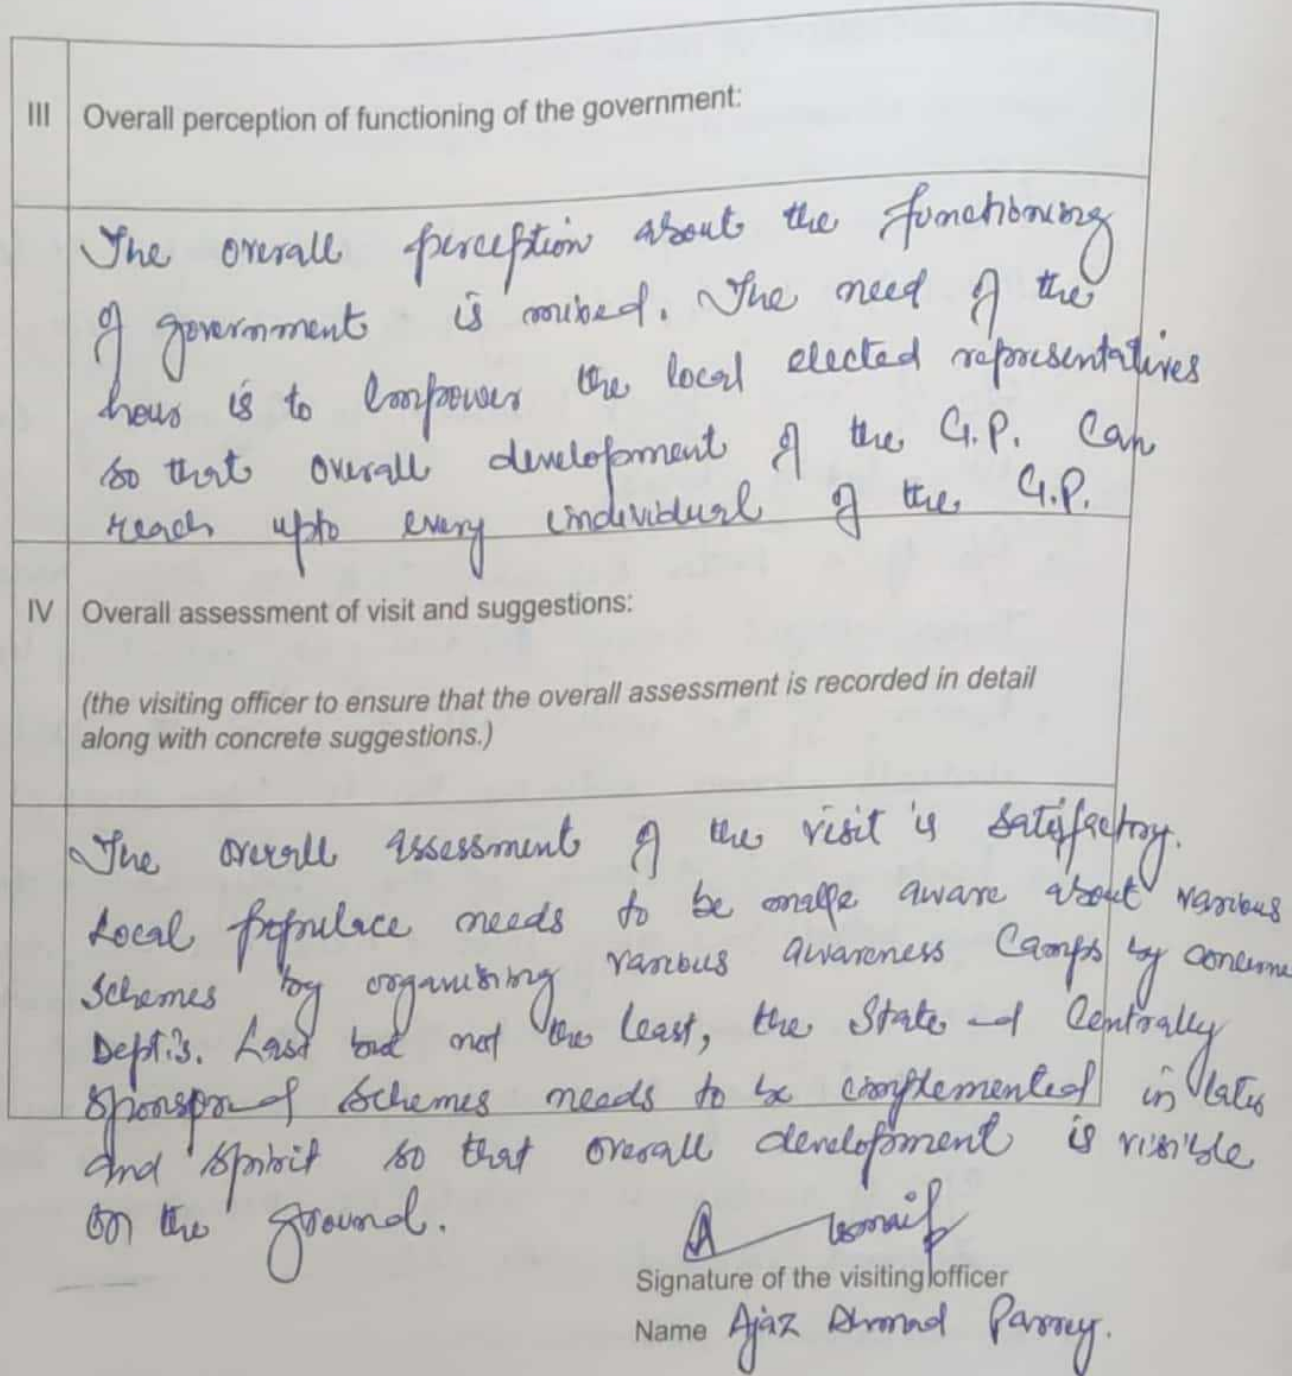 III Overall perception of functioning of the government:
The overall perception about the functioning
of government is mixed. The need of the
hour is to empower the local elected representatives
so that overall development of the G.P. can
reach upto every individual of the G.P.
IV Overall assessment of visit and suggestions:
(the visiting officer to ensure that the overall assessment is recorded in detail
along with concrete suggestions.)
The overall assessment of the visit is satisfactory.
Local populace needs to be made aware about various
schemes by organising various awareness Camps by concerne
Dept.s. Last but not the least, the State and Centrally
sponsored schemes needs to be implemented in later
and spirit so that overall development is visible
on the ground.
Signature of the visiting officer
Name Ajaz Ahmad Parrey.